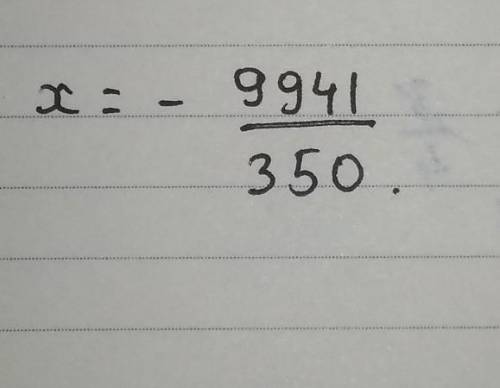 x = - 9941/350.